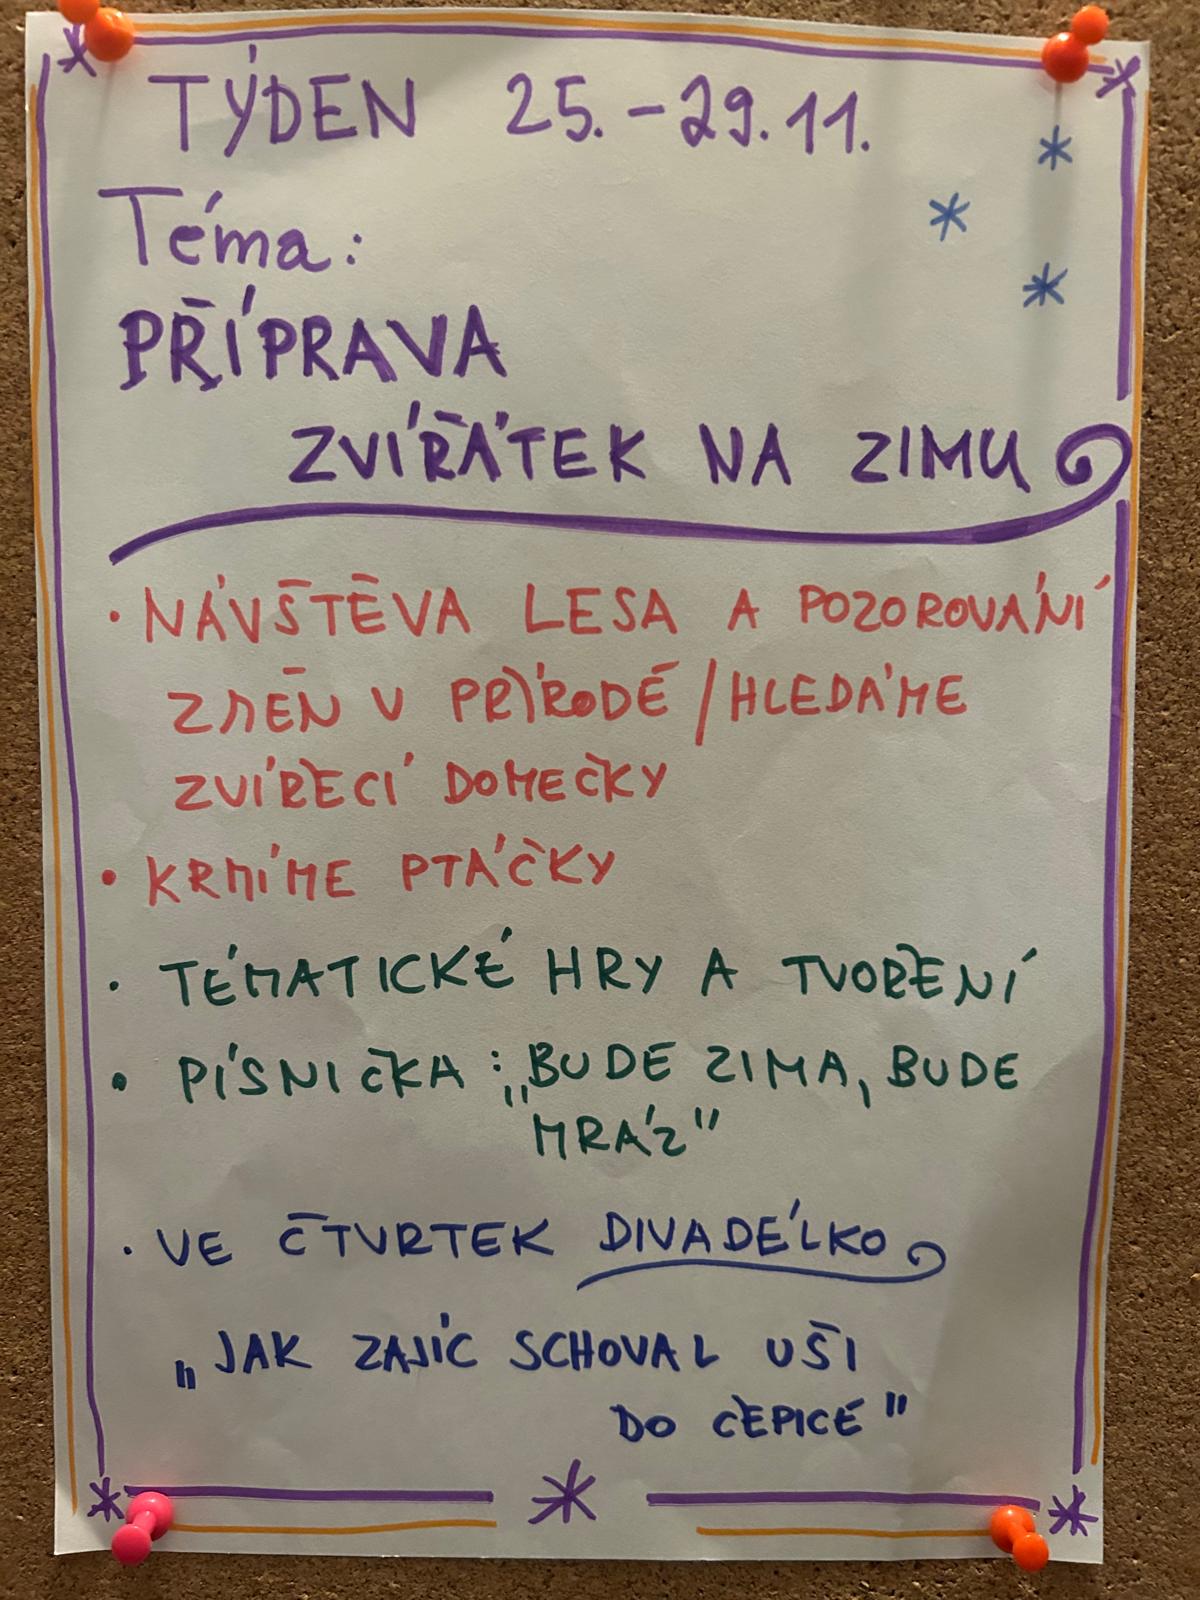 TÝDEN 25.-29.11.
Téma:
PŘÍPRAVA
ZVÍŘÁTEK NA ZIMU
• NÁVŠTĚVA LESA A POZOROVÁNÍ
ZMĚN V PŘÍRODĚ / HLEDÁME
ZVÍŘECÍ DOMEČKY
• KRMÍME PTÁČKY
• TÉMATICKÉ HRY A TVOŘENÍ
• PÍSNIČKA: „BUDE ZIMA, BUDE
MRÁZ"
• VE ČTVRTEK DIVADÉLKO
„JAK ZAJÍC SCHOVAL UŠI
DO ČEPICE"